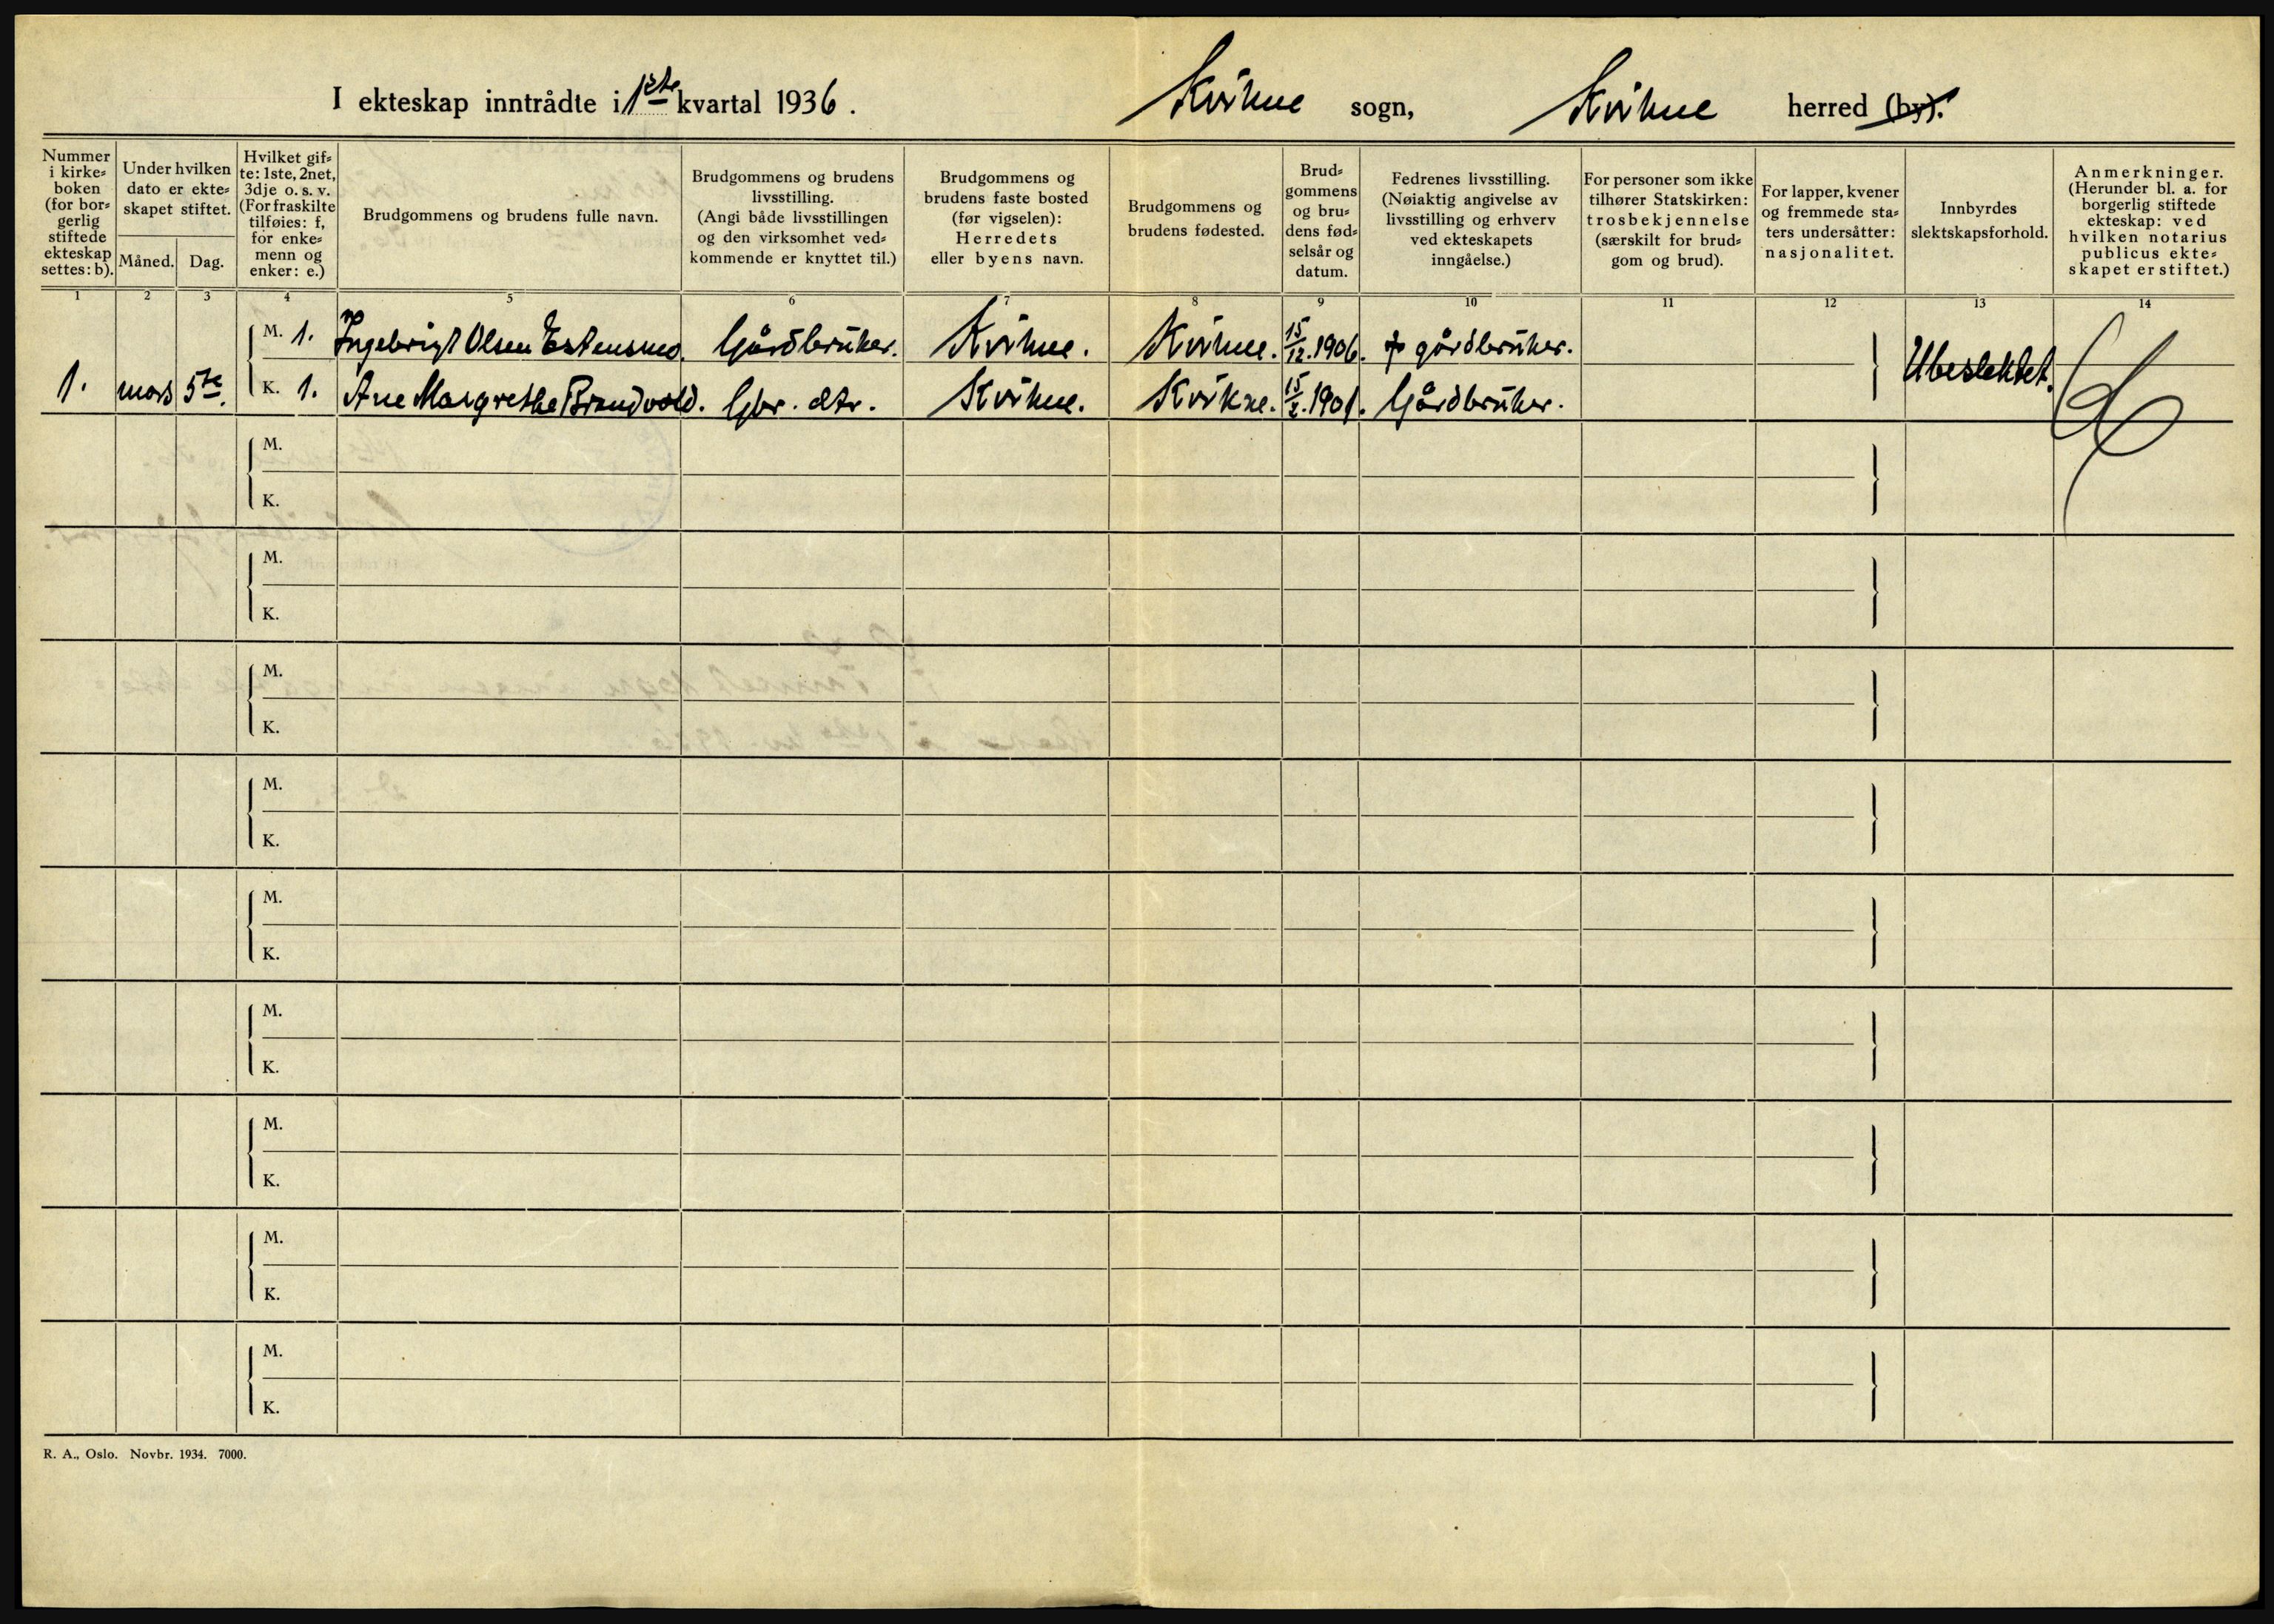 I ekteskap inntrådte i 1ste kvartal 1936. Kvikne sogn, Kvikne herred (by).
Nummer i kirke=boken (for bor=gerlig stiftede ekteskap settes: b).
Under hvilken dato er ekte=skapet stiftet.
Måned. Dag.
Hvilket gif=te: 1ste, 2net, 3dje o. s. v. (For fraskilte tilføies: f, for enke=menn og enker: e.)
Brudgommens og brudens fulle navn.
Brudgommens og brudens livsstilling. (Angi både livsstillingen og den virksomhet ved=kommende er knyttet til.)
Brudgommens og brudens faste bosted (før vigselen): Herredets eller byens navn.
Brudgommens og brudens fødested.
Brud=gommens og bru=dens fød=selsår og datum.
Fedrenes livsstilling. (Nøiaktig angivelse av livsstilling og erhverv ved ekteskapets inngåelse.)
For personer som ikke tilhører Statskirken: trosbekjennelse (særskilt for brud=gom og brud).
For lapper, kvener og fremmede sta=ters undersåtter: nasjonalitet.
Innbyrdes slektskapsforhold.
Anmerkninger. (Herunder bl. a. for borgerlig stiftede ekteskap: ved hvilken notarius publicus ekte=skapet er stiftet.)
1 2 3 4 5 6 7 8 9 10 11 12 13 14
M. 1. Ingebrigt Olsen Estensmo. Gårdbruker. Kvikne. Kvikne. 15/12.1906. gårdbruker. Ubeslektet.
1. mars 5te. K. 1. Ane Margrethe Brendvold. Gbr. dtr. Kvikne. Kvikne. 1901. Gårdbruker.
M.
K.
M.
K.
M.
K.
M.
K.
M.
K.
M.
K.
M.
K.
M.
K.
M.
K.
R. A., Oslo. Novbr. 1934. 7000.